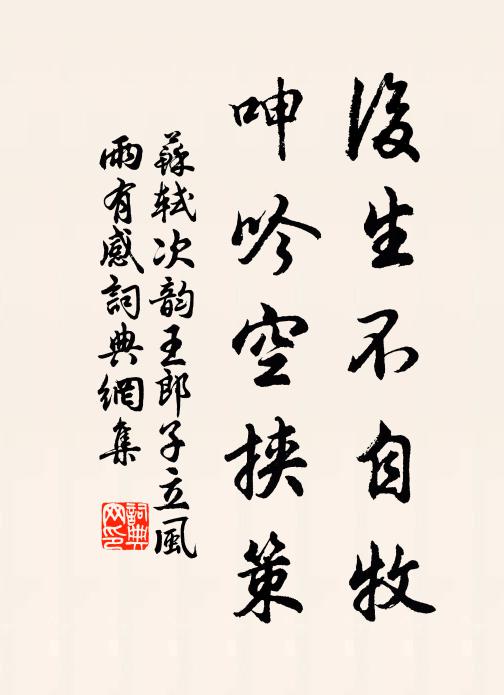 後生不自牧
呻吟空挾策
蘇軾次韵王郎子立風
雨有感詞典網集
詞典
网印